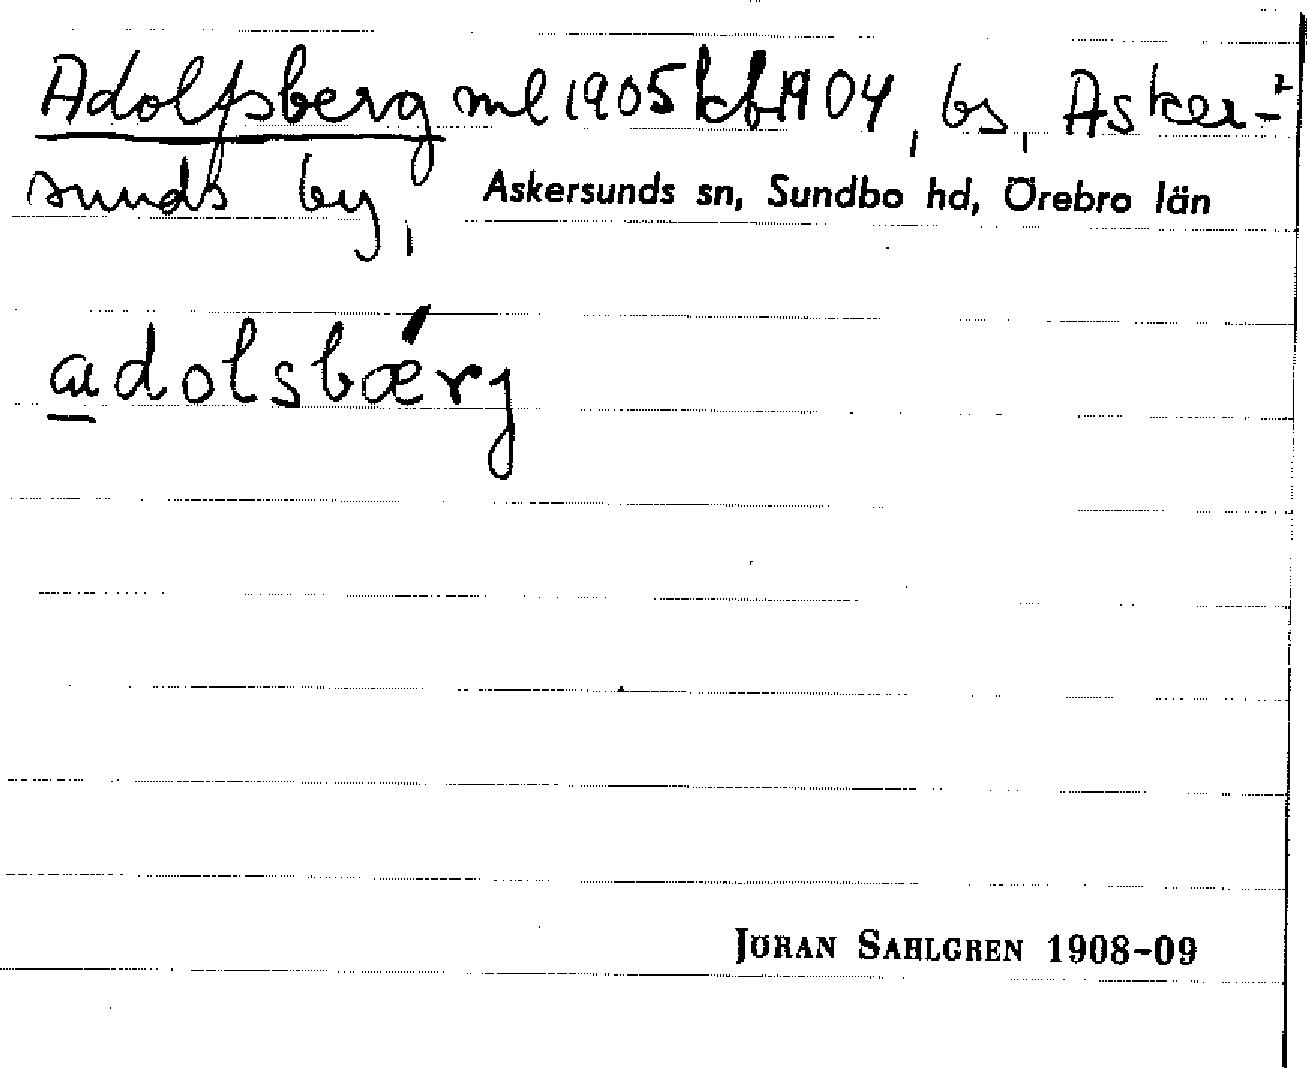 Adolfsberg ml 1905 kbf 1904, bs, Asker-²
sunds by, Askersunds sn, Sundbo hd, Örebro län
adolsbǽrj
JÖRAN SAHLGREN 1908-09